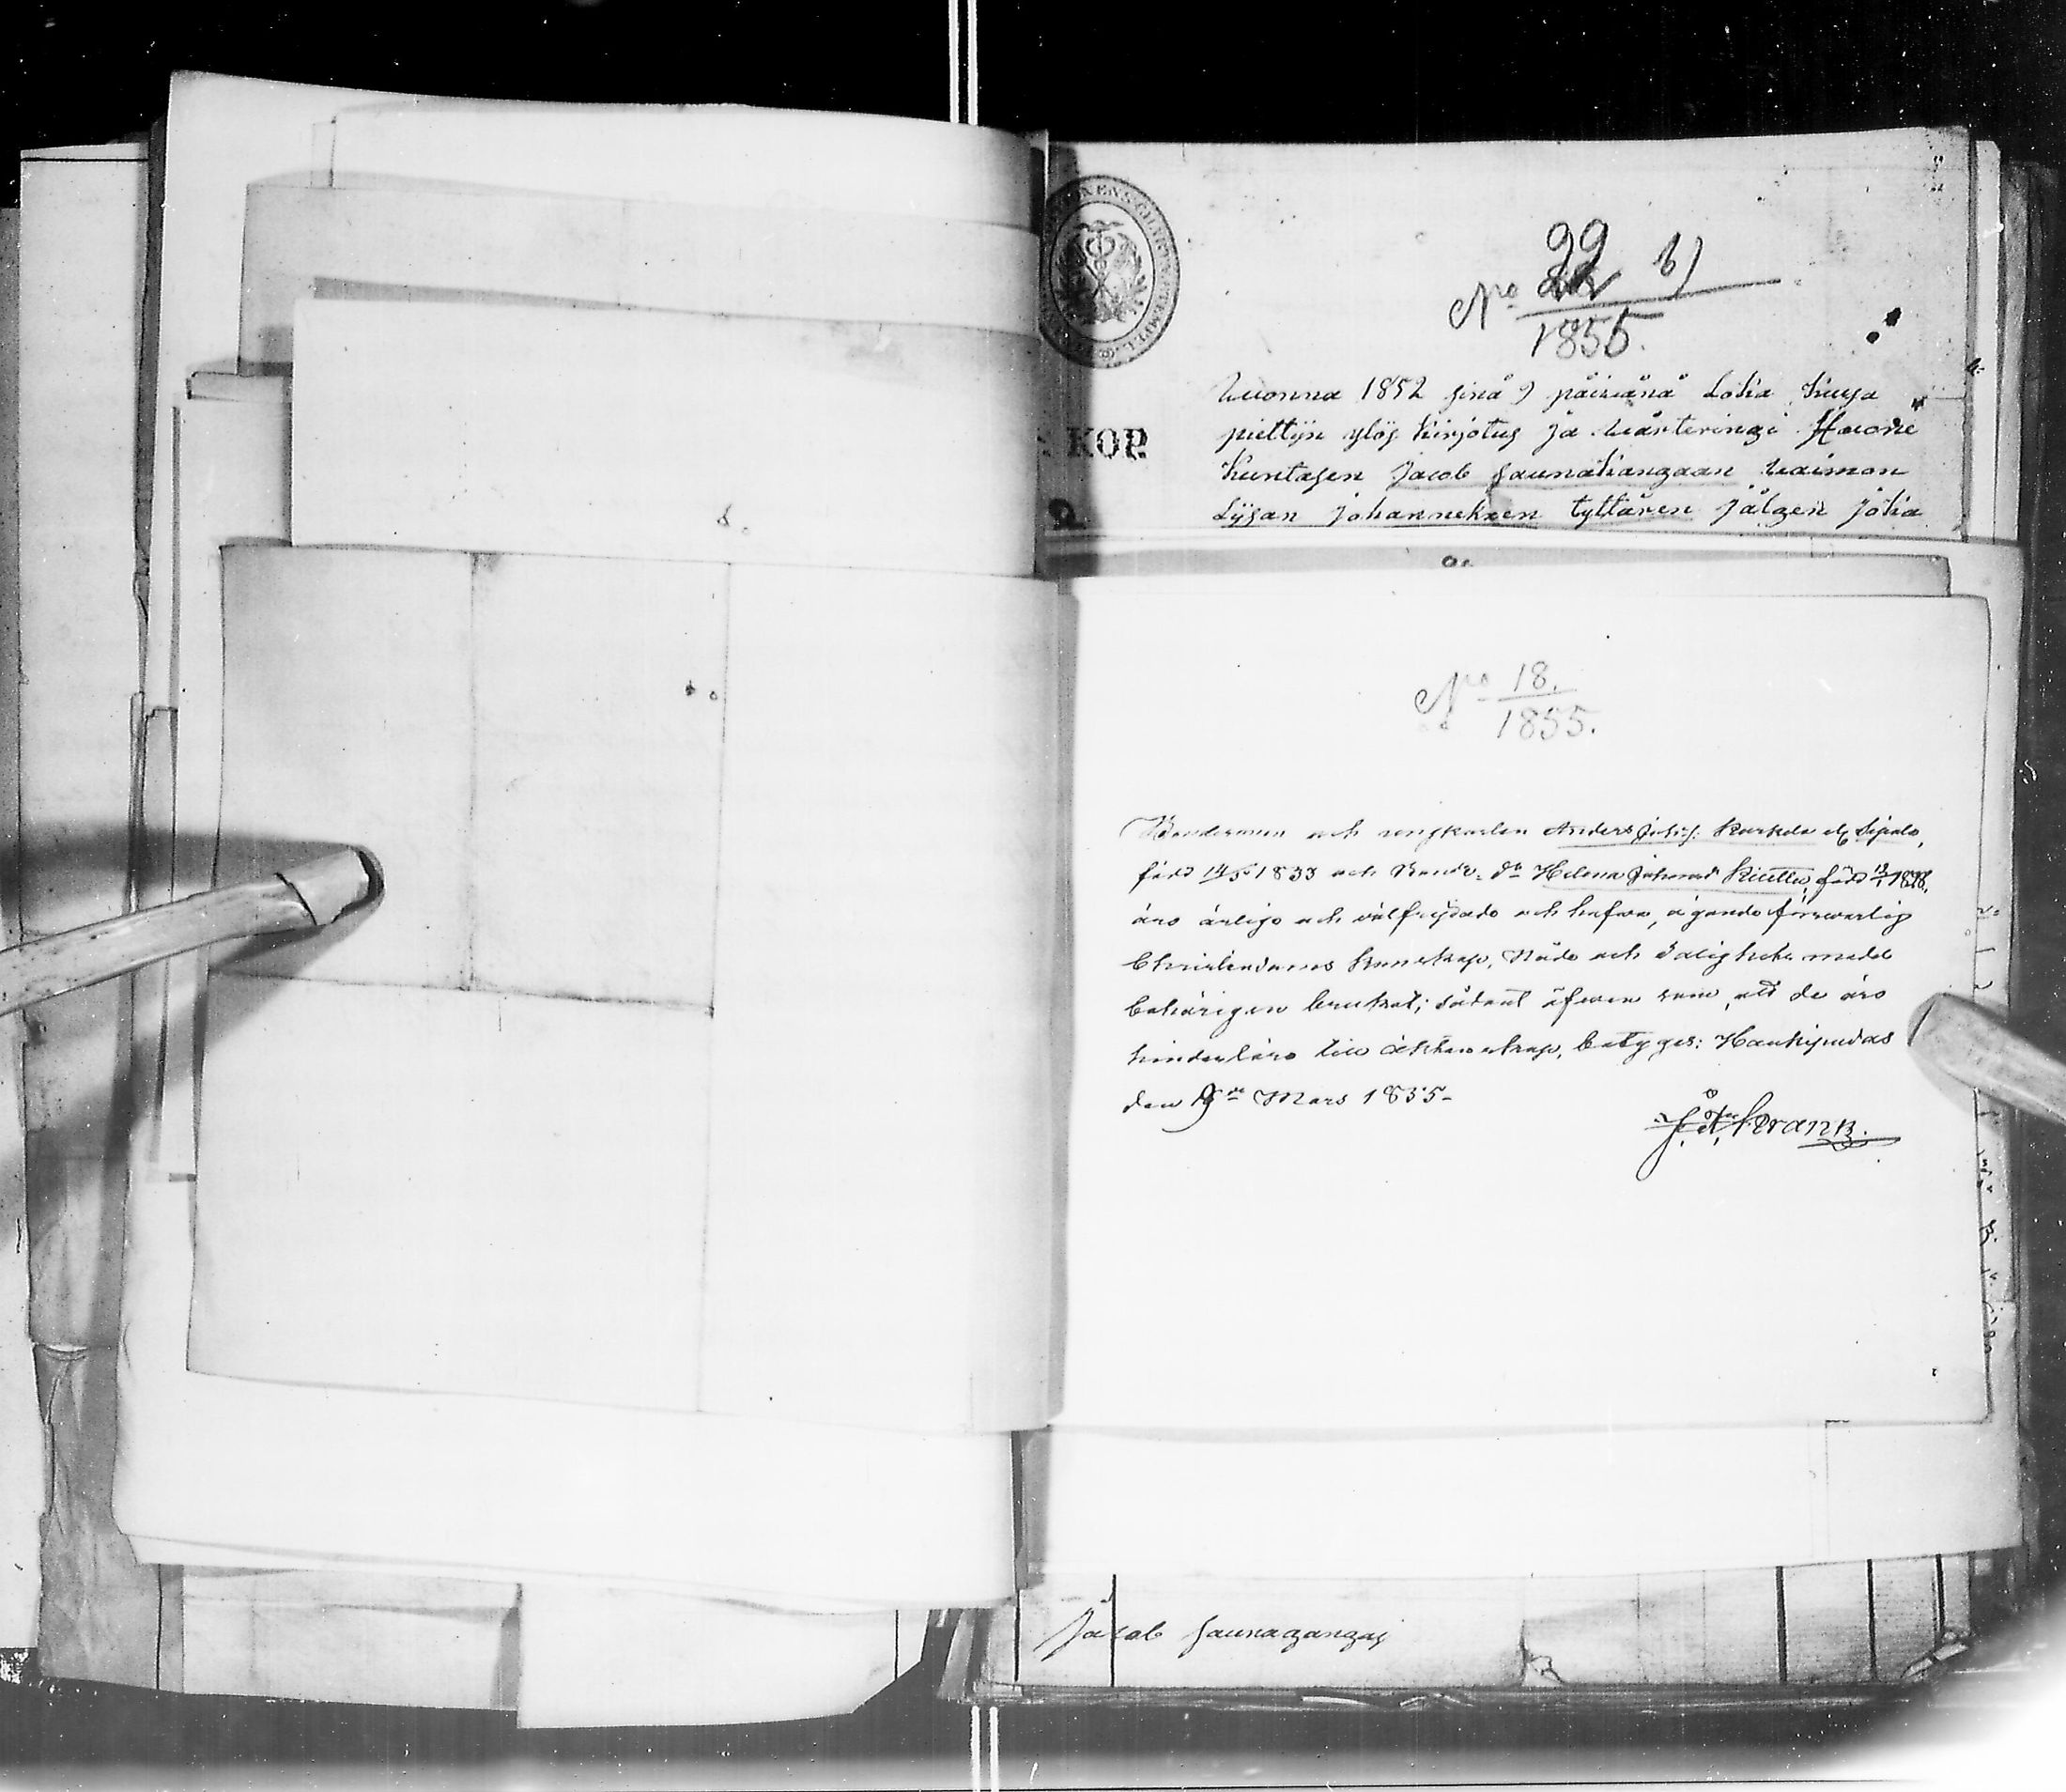 No 22 b)
1855.
KOP.
Wuonna 1852 sinä 9 päivänä Loka kuusa
piettijn ylös kirjotus ja wärteringi Huone
kuntasen Jacob saunakangaan waimon
Lijsan Johanneksen tyttären jälgen joka
No 18.
1855.
Bondesonen och ungkarlen Anders Johss: Kurkela Sipola,
född 14/5 1833 och Bonde. dr Helena Johansdr Kiettu, född 1838,
äro ärlige och välfrejdade och hafwa, ägande försvarlig
Christendoms kunskap, Nåde och Salighets medel
behörigen brukat; sådant äfwen som, att de äro
hinderlöse till äktenskap, betyges: Haukipudas
den 9de Mars 1855.
J. A. Frank.
Jacob saunagangas